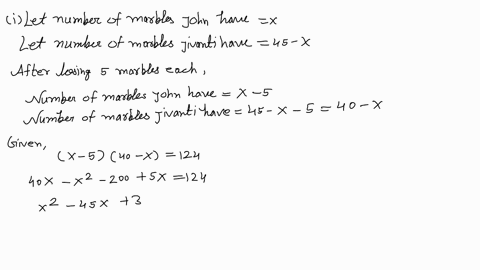 (i) Let number of marbles john have = x
Let number of marbles jivanti have = 45 - x
After losing 5 marbles each,
Number of marbles john have = x - 5
Number of marbles jivanti have = 45 - x - 5 = 40 - x
Given,
(x - 5) (40 - x) = 124
40x - x² - 200 + 5x = 124
x² - 45x + 3